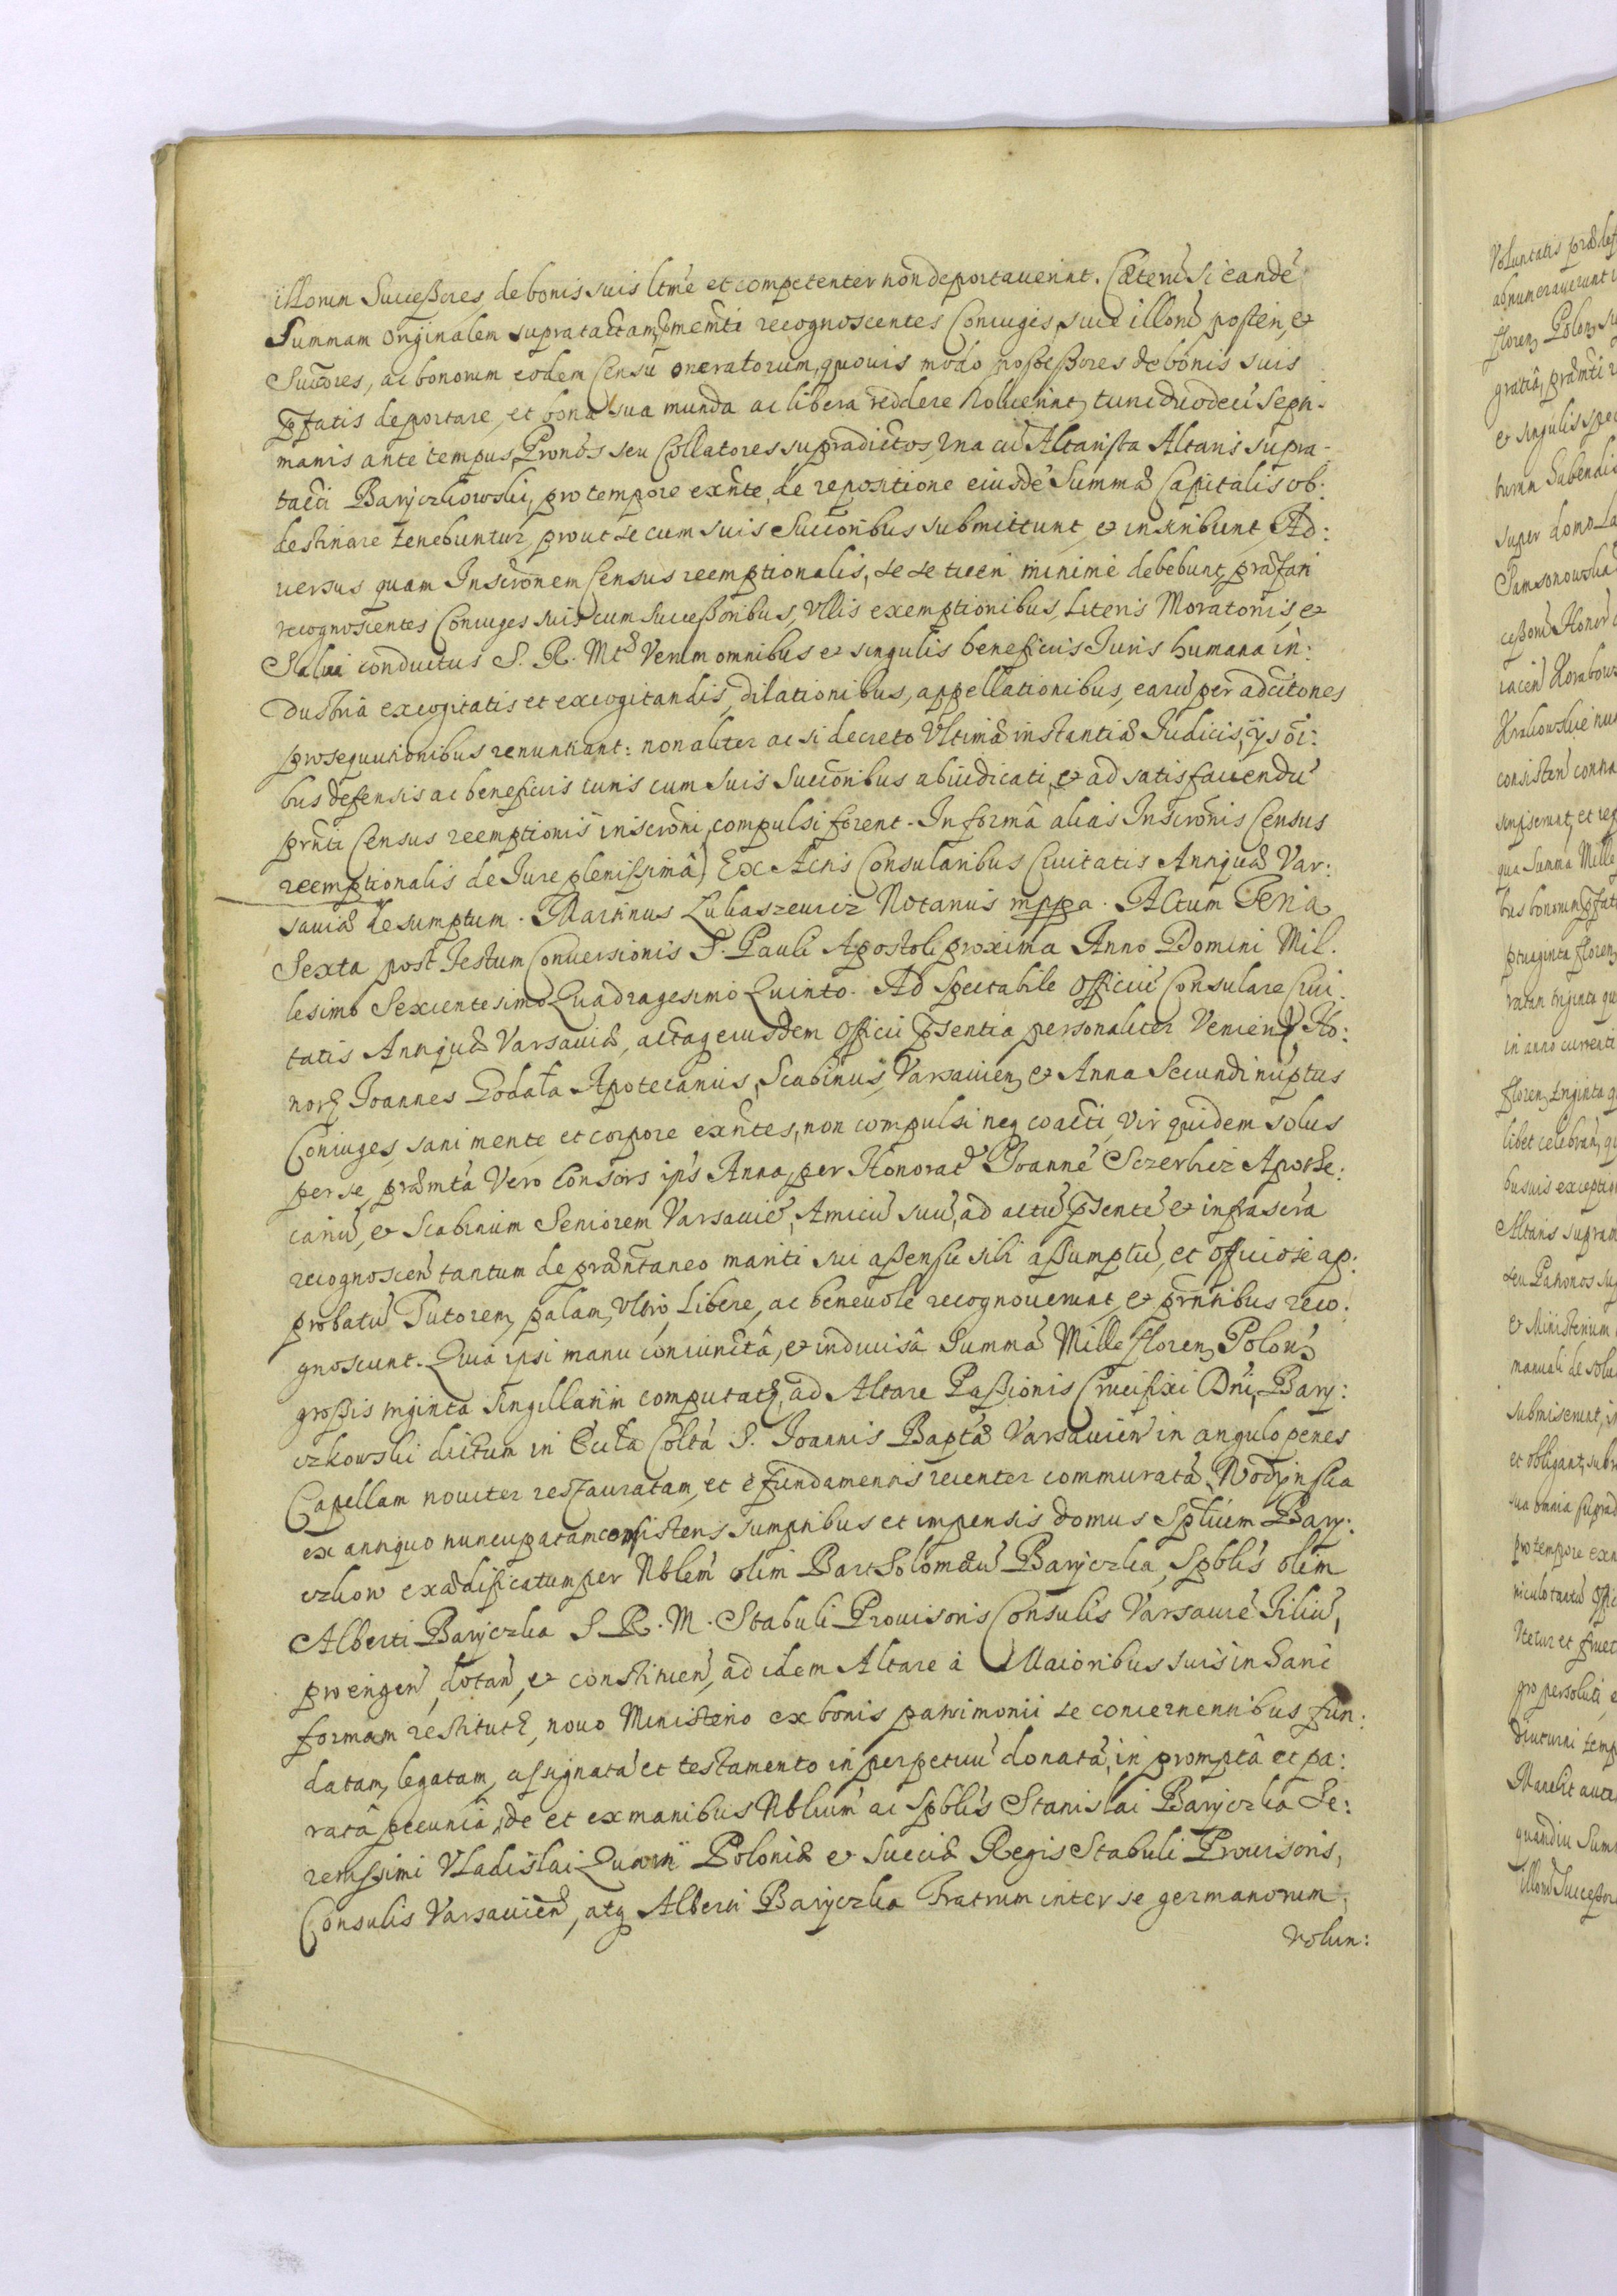 illorum Successores, de bonis suis ltmè et competenter non deportauerint. Cæterũ si eandẽ
Summam originalem supratactam, pmemti recognoscentes Coniuges, siue illorũ posteri, et
Succores, ac bonorum eodem Censu oneratorum, quouis modo possessores de bonis suis
pfatis deportare, et bona sua munda ac libera reddere noluerint, tunc duodeci Sepn-
manis ante tempus, Pronos seu Collatores supradictos, vna cũ Altarista Altaris supra-
tacti Baryczkowski, pro tempore exnte, de repositione eiusdẽ Summæ Capitalis ob:
destinare tenebuntur, prout se cum suis Succoribus submittunt, et inscribunt. Ad:
uersus quam Inscronem Census reemptionalis, se se tueri minimè debebunt, præfati
recognoscentes Coniuges suis cum successoribus, vllis exemptionibus, Literis Moratoriis, et
Salui conductus S. R. Mtis Verum omnibus et singulis beneficiis Iuris humana in:
dustria excogitatis et excogitandis, dilationibus, appellationibus, earũ per adcitones
prosequutionibus renuntiant: non aliter ac si decreto Vltimæ instantiæ Iudicis, ijs oi:
bus defensis ac beneficiis iuris cum suis Succoribus abiudicati, et ad satisfaciendũ
prnti Census reemptionis inscroni, compulsi forent. In formâ aliàs Inscronis Census
reemptionalis de Iure plenissimâ) Ex Actis Consularibus Ciuitatis Antiquæ Var:
sauiæ desumptum. Martinus Lukaszewicz Notarius mppa. Actum Feria
Sexta post Festum Conuersionis S. Pauli Apostoli proxima Anno Domini Mil.
lesimo Sexcentesimo Quadragesimo Quinto. Ad Spectabile Officiũ Consulare Ciui-
tatis Antiquæ Varsauiæ, actaq eiusdem Officii psentia personaliter Venien, Ho:
nor Ioannes Podała Apotecarius, Scabinus, Varsauien, et Anna Secundi nuptus
Coniuges, sani mente, et corpore exntes, non compulsi neq coacti, vir quidem solus
per se, præmta Vero Consors ips Anna, per Honorat Ioannẽ Sczerbicz Apothe:
cariũ, et Scabinum Seniorem Varsauiẽ, Amicũ suũ, ad actũ psentẽ et infrascra
recognoscen tantum de præntaneo mariti sui assensu sibi assumptũ, et officiose ap:
probatũ Tutorem, palam, vltrò, Libere, ac beneuolè recognouerunt, et prntibus reco:
gnoscunt. Quia ipsi manu coniunctâ, et indiuisâ Summã Mille floren, Polon,
grossis triginta singillatim computat, ad Altare Passionis Crucifixi Dni, Bary:
czkowski dictum in Eccta Coltã S. Ioannis Baptæ Varsauien in angulo penes
Capellam nouiter restauratam, et è fundamentis recenter commuratã Wodynska
ex antiquo nuncupatam consistens sumptibus et impensis domus Spliuem Bary:
czkow exædificatum per Nblem olim Bartholomæũ Baryczka, Spblis olim
Alberti Baryczka S. R. M. Stabuli Prouisoris Consulis Varsauiẽ Filiũ,
pro erigen, dotan, et constituen, ad idem Altare à Maioribus suis in hanc
formam restitut, nouo Ministerio ex bonis patrimonii se concernentibus fun:
datam, legatam, assignatã et testamento in perpetuũ donatã, in promptâ et pa:
ratâ pecuniâ, de et ex manibus Nblium ac Spblis Stanislai Baryczka Se:
renissimi Vladislai Quarti Poloniæ et Sueciæ Regis Stabuli Prouisoris,
Consulis Varsauien, atq Alberti Baryczka Fratrum inter se germanorum,
volun:
Voluntatis
adnumerauerunt
floren, Polon
gratiâ, præmti
et singulis
turm habendis
super domo
Samsonowska
Honor
consisten
qua Summa Mille
in anno currenti
floren, triginta
Altaris supra
seu Patronos
et Ministerium
manuali
submiserunt,
et obligant
pro tempore
pro persoluti
diuturni
quandiu Sum